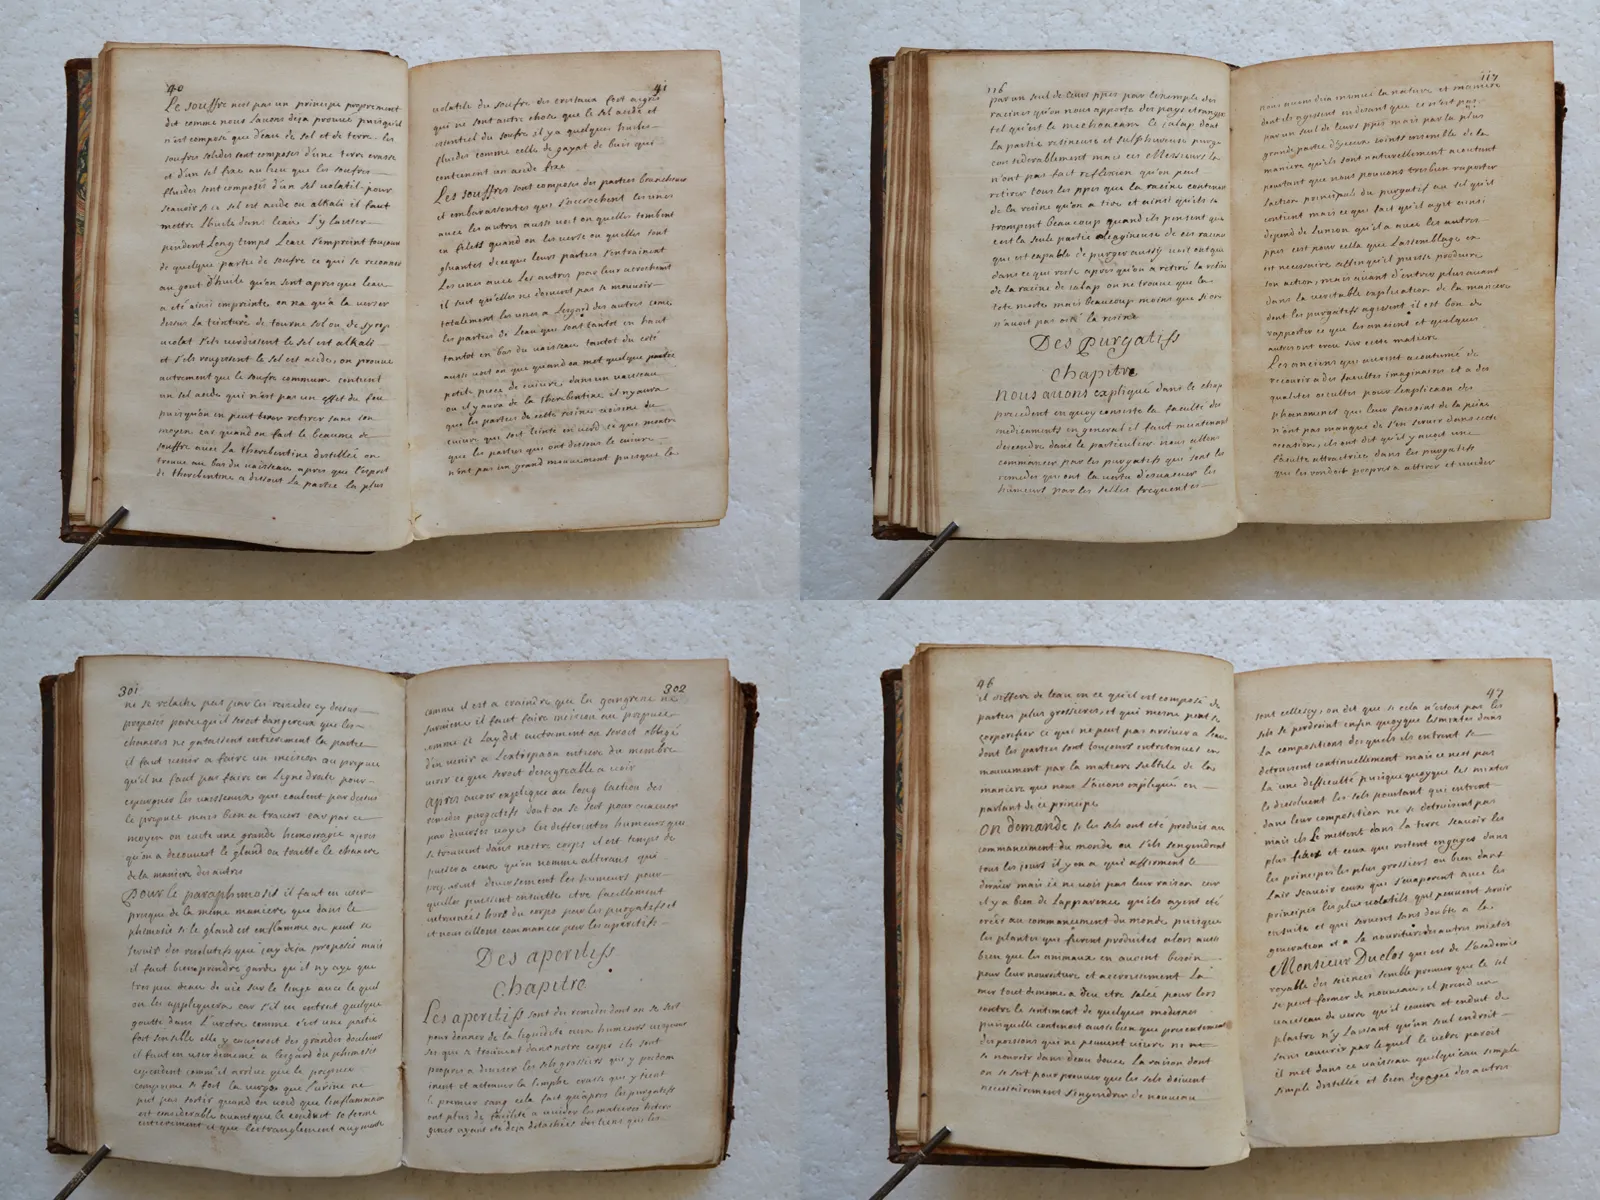 40
Le souffre n'est pas un principe proprement
dit comme nous lavons deja prouvé puisqu'il
n'est composé que d'eau de sel et de terre. les
soufres solides sont composes d'une terre crasse
et d'un sel fixe au lieu que les soufres
fluides sont composés d'un sel volatil. pour
scauoir si ce sel est acide ou alkali il faut
mettre l'huile dans leau l'y laisser
pendent Long temps Leau s'empreint toujours
de quelque partie de soufre ce qui se reconnoi
au gout d'huile qu'on sent apres que leau
a été ainsi imprinte on na qu'a la verser
dessus la teinture de tourne sol ou de syrop
violat s'ils verdissent le sel est alkali
et s'ils rougissent le sel est acide, on prouve
autrement que le soufre commun contient
un sel acide qui n'est pas un effet du feu
puisqu'on en peut retirer sans son
moyen car quand on fait le beaume de
souffre avec la therebentine distillée on
trouve au bas du vaisseau apres que l'esprit
de therebentine a dissout la partie la plus
41
volatile du soufre des cristaux fort aigres
qui ne sont autre chose que le sel acide et
essentiel du soufre il y a quelques huiles
fluides comme celle de gayat de buis qui
contienent un acide fixe
Les souffres sont composés des parties branchues
et embarassentes qui s'acrochent les unes
avec les autres aussi voit on quelles tombent
en filets quand on les verse ou quelles sont
gluantes deceque leurs parties s'entrainent
Les unes avec Les autres par leur acrochement
il suit qu'elles ne doivent pas se mouvoir
totalement les unes a Legard des autres come
les parties de Leau qui sont tantot en haut
tantot en bas du vaisseau tantot du coté
aussi voit on que quand on met quelque
petite piece de cuivre dans un vaisseau
ou il y aura de la therebentine il n'y aura
que les parties de cette resine voisine du
cuivre qui soit teinte en verd, ce que montre
que les parties qui ont dissous le cuivre
n'ont pas un grand mouvement puisque la
116
par un seul de leurs ppies par l'exemple des
racines qu'on nous apporte des pays etrange
tel qu'est le mechoacam le jalap dont
la partie resineuse et sulphureuse purge
considerablement mais ces Messieurs la
n'ont pas fait reflexion qu'on peut
retirer tous les ppies que la racine contenoi
de la resine qu'on a tiré et ainsi qu'ils se
trompent beaucoup quand ils pensent que
c'est la seule partie oleagineuse de ces racin
qui est capable de purger aussy voit on que
dans ce qui reste apres qu'on a retiré la resine
de la racine de jalap on ne trouve que la
tete morte mais beaucoup moins que si on
n'avoit pas oté la resine
Des purgatifs
Chapitre
Nous avons expliqué dans le chap
precedent en quoy consiste la faculté des
medicaments en general il faut maintenant
descendre dans le particulier nous allons
commancer par les purgatifs qui sont les
remedes qui ont la vertu d'evacuer les
humeurs par les selles frequentes
117
nous avons deja insinué la nature et maniere
dont ils agissent en disant que ce n'est pas
par un seul de leurs ppies mais par la plus
grande partie d'iceux joints ensemble de la
maniere qu'ils sont naturellement
pourtant que nous pouvons tresbien raporter
laction principale du purgatif au sel qu'il
contient mais ce qui fait qu'il agit ainsi
depend de lunion qu'il a avec les autres
ppies est pour cela que lassemblage en
est necessaire affin qu'il puisse produire
son action, mais avant d'entrer plus avant
dans la veritable explication de la maniere
dont les purgatifs agissent il est bon de
rapporter ce que les anciens et quelques
autres ont creu sur cette matiere
Les anciens qui avoient acoutumé de
recourir a des facultes imaginaires et a des
qualites occultes pour lexplicaon des
phœnomenes qui leur faisoient de la peine
n'ont pas manqué de s'en servir dans cette
occasion, ils ont dit qu'il y avoit une
faculte attractrice dans les purgatifs
qui les rendoit propres a attirer et uuider
301
ne se relache pas par les remedes cy dessus
proposés parcequ'il seroit dangereux que les
chancres ne gatassent entierement la partie
il faut venir a faire un incision au prepuce
qu'il ne faut pas faire en Ligne drate pour
epargner les vaisseaux qui coulent par dessus
le prepuce mais bien a travers car par ce
moyen on evite une grande hemoragie apres
qu'on a decouvert le gland on traitte le chancre
de la maniere des autres
Pour le paraphimosis il faut en user
presque de la même maniere que dans le
phimosis si le gland est enflammé on peut se
servir des resolutifs que j'ay deja proposés mais
il faut bien prendre garde qu'il n'y aye que
tres peu d'eau de vie sur le linge avec le quel
on les appliquera car s'il en entroit quelque
goutte dans L'uretre comme c'est une partie
fort sensible elle y causeroit des grandes douleurs
il faut en user de meme a legard du phimosis
cependent comm'il arrive que le prepuce
comprime si fort la verge que l'urine ne
put pas sortir quand on void que l'inflammaon
est considerable avant que le conduit se ferme
entierement et que l'estranglement augmente
302
comme il est a craindre que la gangrene ne
survienne il faut faire incision au prepuce
comme je Lay dit autrement on seroit obligé
d'en venir a Lextirpaon entiere du membre
viril ce que seroit desagreable a voir
Apres avoir expliqué au long laction des
remedes purgatifs dont on se sert pour evacuer
par diverses voyes les differentes humeurs qui
se trouvent dans nostre corps il est temps de
passer a ceux qu'on nomme alterans qui
preparent diversement les humeurs pour
quelles puissent ensuitte etre facillement
entrainées hors du corps par les purgatifs et
nous allons commancer par les aperitifs
Des aperitifs
Chapitre
Les aperitifs sont du remedes dont on se sert
pour donner de la liquidité aux humeurs visqueu
ses qui se trouvent dans notre corps ils sont
propres a diviser les sels grossiers qui y predom
inent et attenuer la limphe crasse qui y tient
le premier rang cela fait qu'apres les purgatifs
ont plus de facilité a uuider les matieres hetero
genes ayant eté deja detachées des liens qui les
46
il differe de leau en ce qu'il est composé de
parties plus grossieres, et qui mesme peut se
corporifier ce qui ne peut pas arriver a Leau
dont les parties sont toujours entretenues en
mouvement par la matiere subtile de la
maniere que nous l'avons expliqué en
parlant de ce principe
On demande si les sels ont eté produit au
commancement du monde ou s'ils s'engendrent
tous les jours il y en a qui affirment le
dernier mais je ne vois pas leur raison car
il y a bien de l'apparence qu'ils ayent eté
créés au commancement du monde, puisque
les plantes qui furent produites alors aussi
bien que les animaux en avoient besoin
pour leur nourriture et accroissement La
mer tout de meme a deu etre salée pour lors
contre le sentiment de quelques modernes
puisquelle contenoit aussi bien que presentement
des poissons qui ne peuvent vivre ne
se nourrir dans deau douce la raison dont
on se sert pour prouver que les sels doivent
necessairement s'engendrer de nouveau
47
sont cellescy, on dit que si cela n'estoit pas les
sels se perdroint enfin quoyque les mixtes dans
La compositions desquels ils entrent se
detruisent continuellement mais ce n'est pas
La une difficulté puisque quoyque les mixtes
se dissolvent les sels pourtant qui entrent
dans leur composition ne se detruisent pas
mais ils se mettent dans la terre scavoir les
plus fixes et ceux qui restent engagés dans
les principes les plus grossiers ou bien dans
lair scavoir ceux qui s'evaporent avec les
principes les plus volatils, qui peuvent servir
ensuite et qui servent sans doutte a la
generation et a la nourriture des autres mixtes
Monsieur Duclos qui est de L'academie
royalle des sciences semble prouver que le sel
se peut former de nouveau, il prend un
vaisseau de verre qu'il couvre et enduit de
plastre n'y Laissant qu'un seul endroit
sans couvrir par lequel le verre paroit
il met dans ce vaisseau quelqu'eau simple
simple distillée et bien degagée des autres